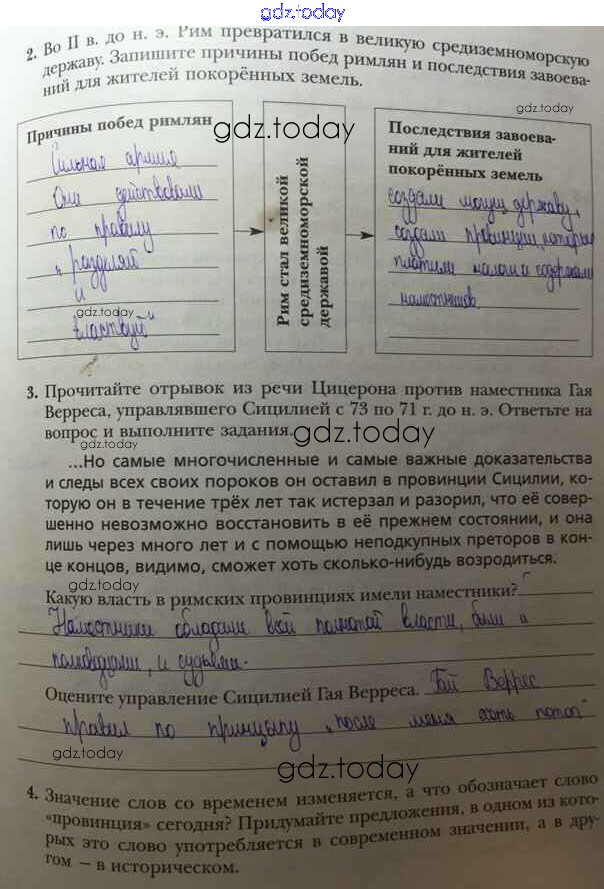 gdz.today
2. Во II в. до н. э. Рим превратился в великую средиземноморскую
державу. Запишите причины побед римлян и последствия завоева-
ний для жителей покорённых земель.
gdz.today
Причины побед римлян
gdz.today
Сильная армия
Они действовали
по правилу
„разделяй
и
gdz.today
властвуй"
Рим стал великой
средиземноморской
державой
Последствия завоева-
ний для жителей
покорённых земель
создали могущ державу,
создали провинции, которые
платили налоги и содержали
наместников.
3. Прочитайте отрывок из речи Цицерона против наместника Гая
Верреса, управлявшего Сицилией с 73 по 71 г. до н. э. Ответьте на
вопрос и выполните задания.
gdz.today
gdz.today
...Но самые многочисленные и самые важные доказательства
и следы всех своих пороков он оставил в провинции Сицилии, ко-
торую он в течение трёх лет так истерзал и разорил, что её совер-
шенно невозможно восстановить в её прежнем состоянии, и она
лишь через много лет и с помощью неподкупных преторов в кон-
це концов, видимо, сможет хоть сколько-нибудь возродиться.
gdz.today
Какую власть в римских провинциях имели наместники?
gdz.today
Наместники обладали всей полнотой власти, были и
полководцами, и судьями.
Оцените управление Сицилией Гая Верреса. Гай Веррес
правил по принципу „после меня хоть потоп"
gdz.today
gdz.today
4. Значение слов со временем изменяется, а что обозначает слово
«провинция» сегодня? Придумайте предложения, в одном из кото-
рых это слово употребляется в современном значении, а в дру-
гом – в историческом.